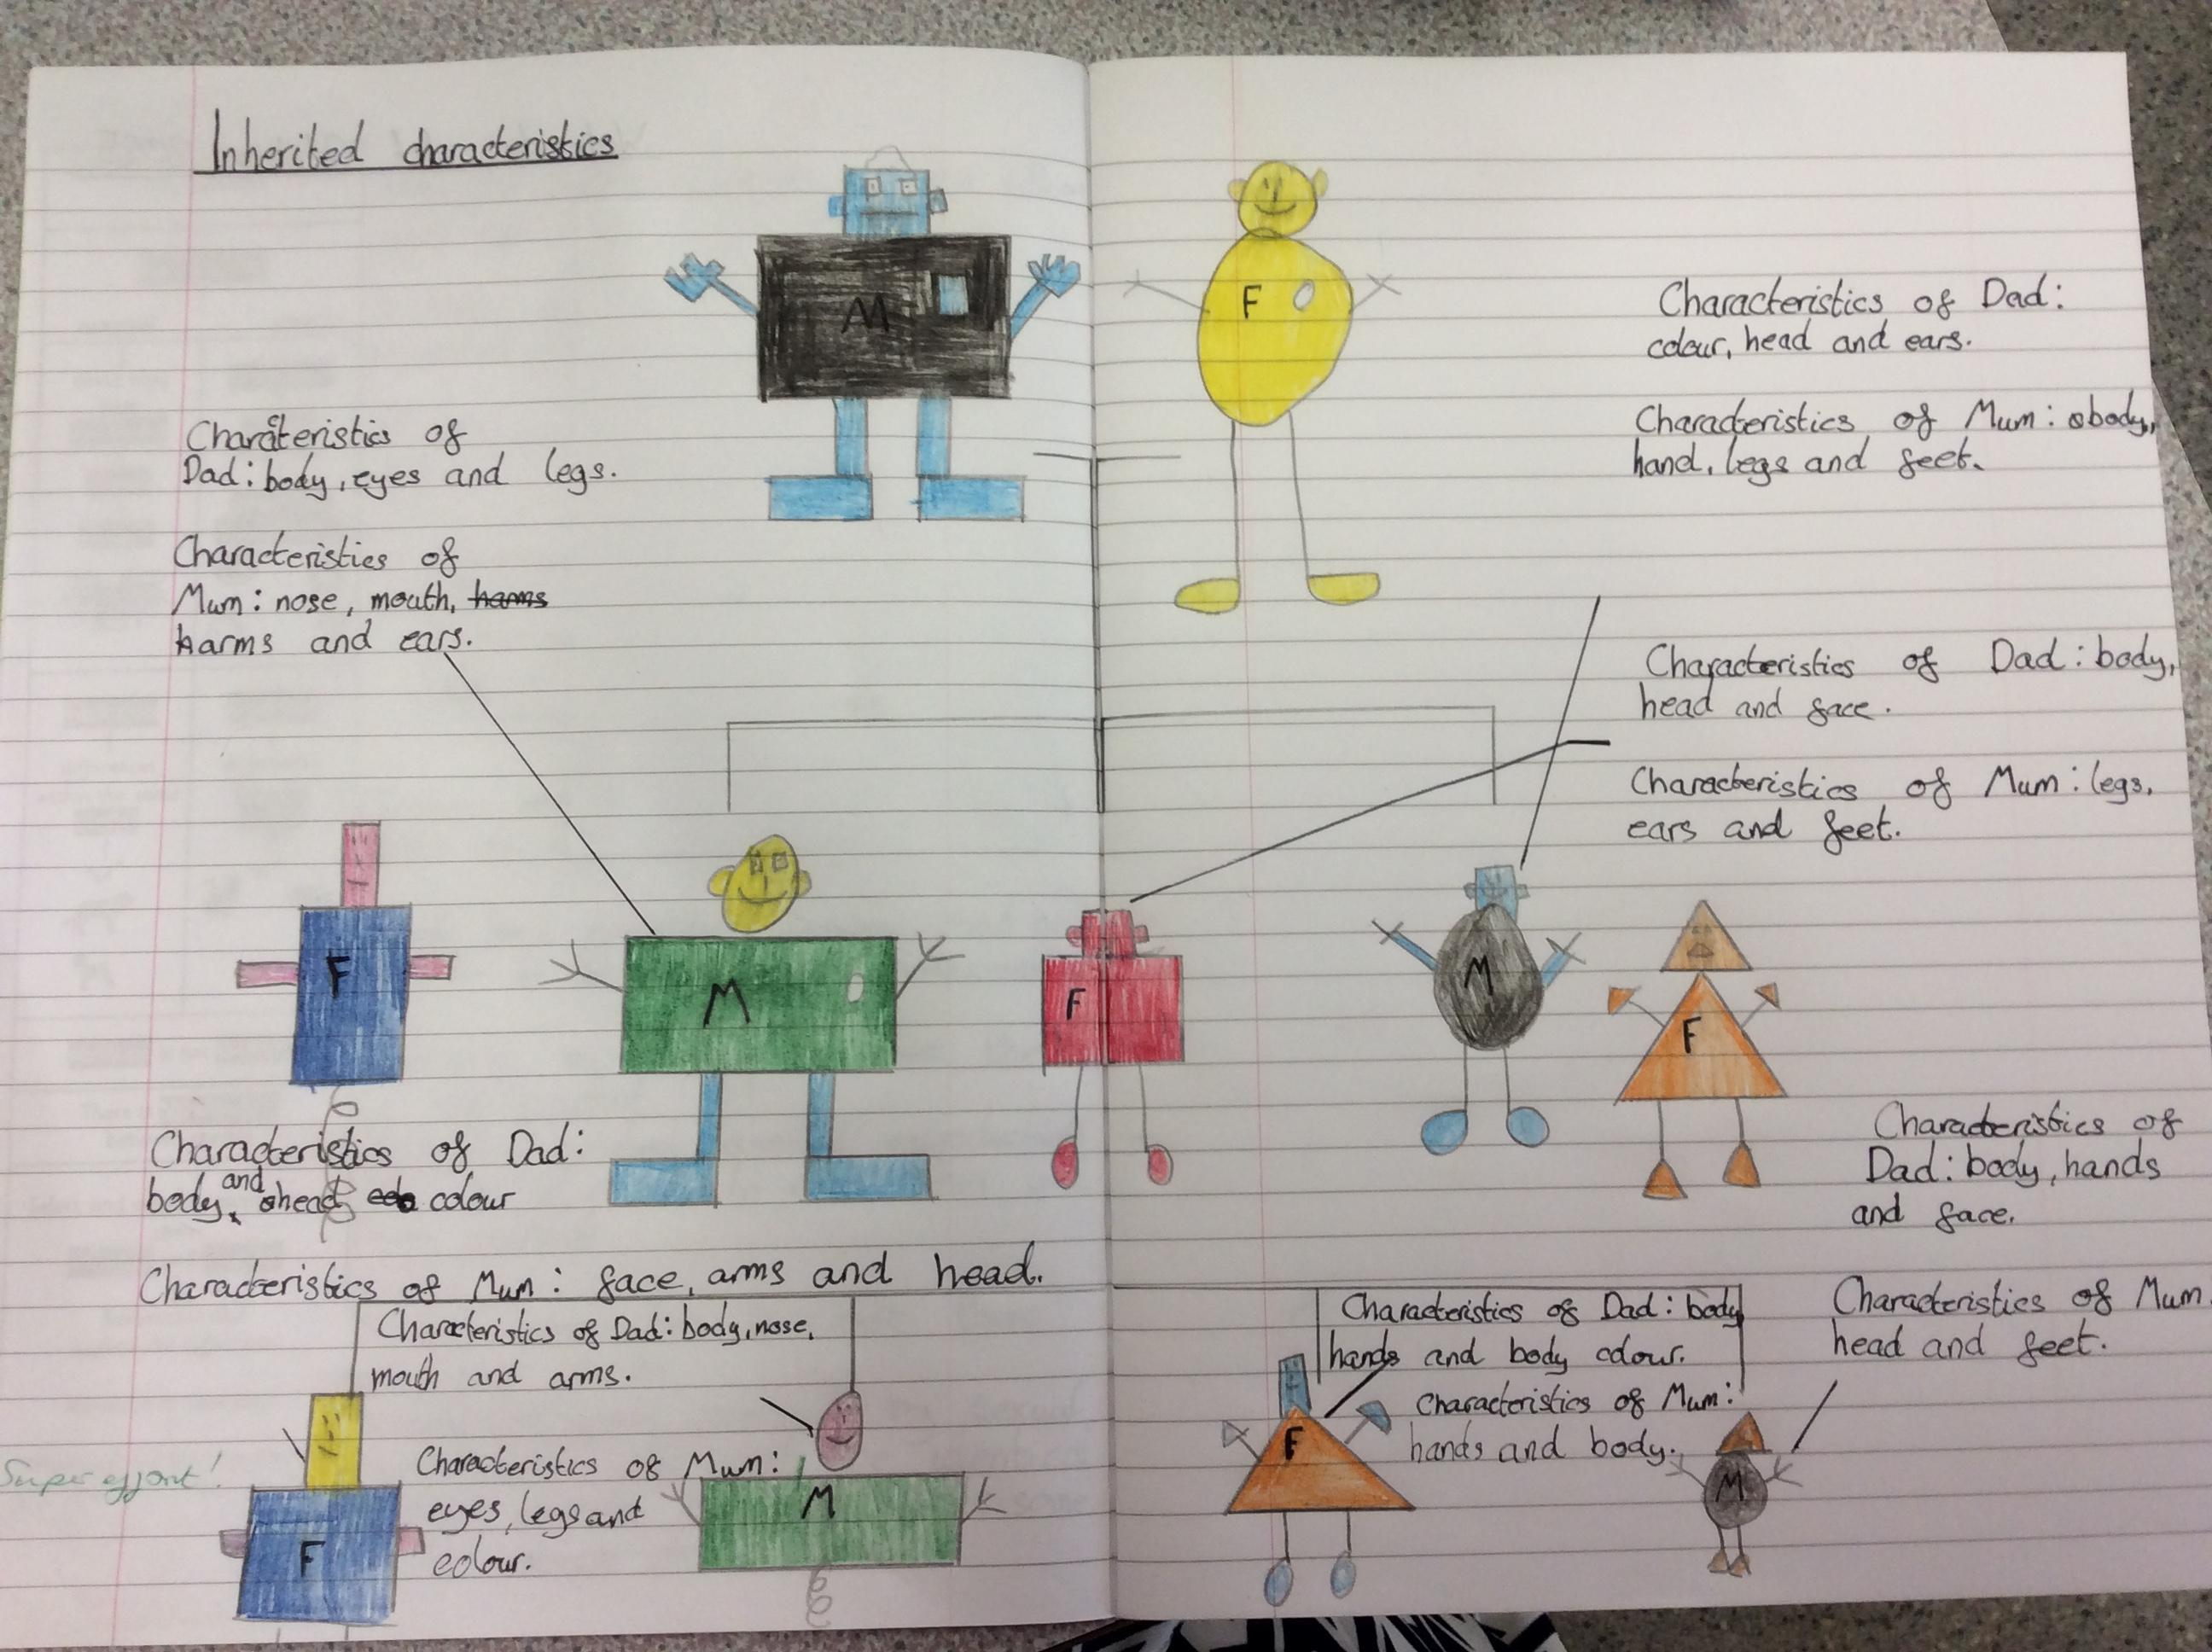 Inherited characteristics
M
F
Characteristics of Dad:
colour, head and ears.
Characteristics of Mum: body,
hand, legs and feet.
Characteristics of
Dad: body, eyes and legs.
Characteristics of
Mum: nose, mouth, harms
harms and ears.
Characteristics of Dad: body,
head and face.
Characteristics of Mum: legs,
ears and feet.
F
M
F
M
F
Characteristics of Dad:
body, and head colour
Characteristics of Mum: face, arms and head.
Characteristics of
Dad: body, hands
and face.
Characteristics of Mum
head and feet.
Characteristics of Dad: body, nose,
mouth and arms.
Characteristics of Mum:
eyes, legs and
colour.
Characteristics of Dad: body
hands and body colour.
Characteristics of Mum:
hands and body.
Super effort!
F
M
F
M